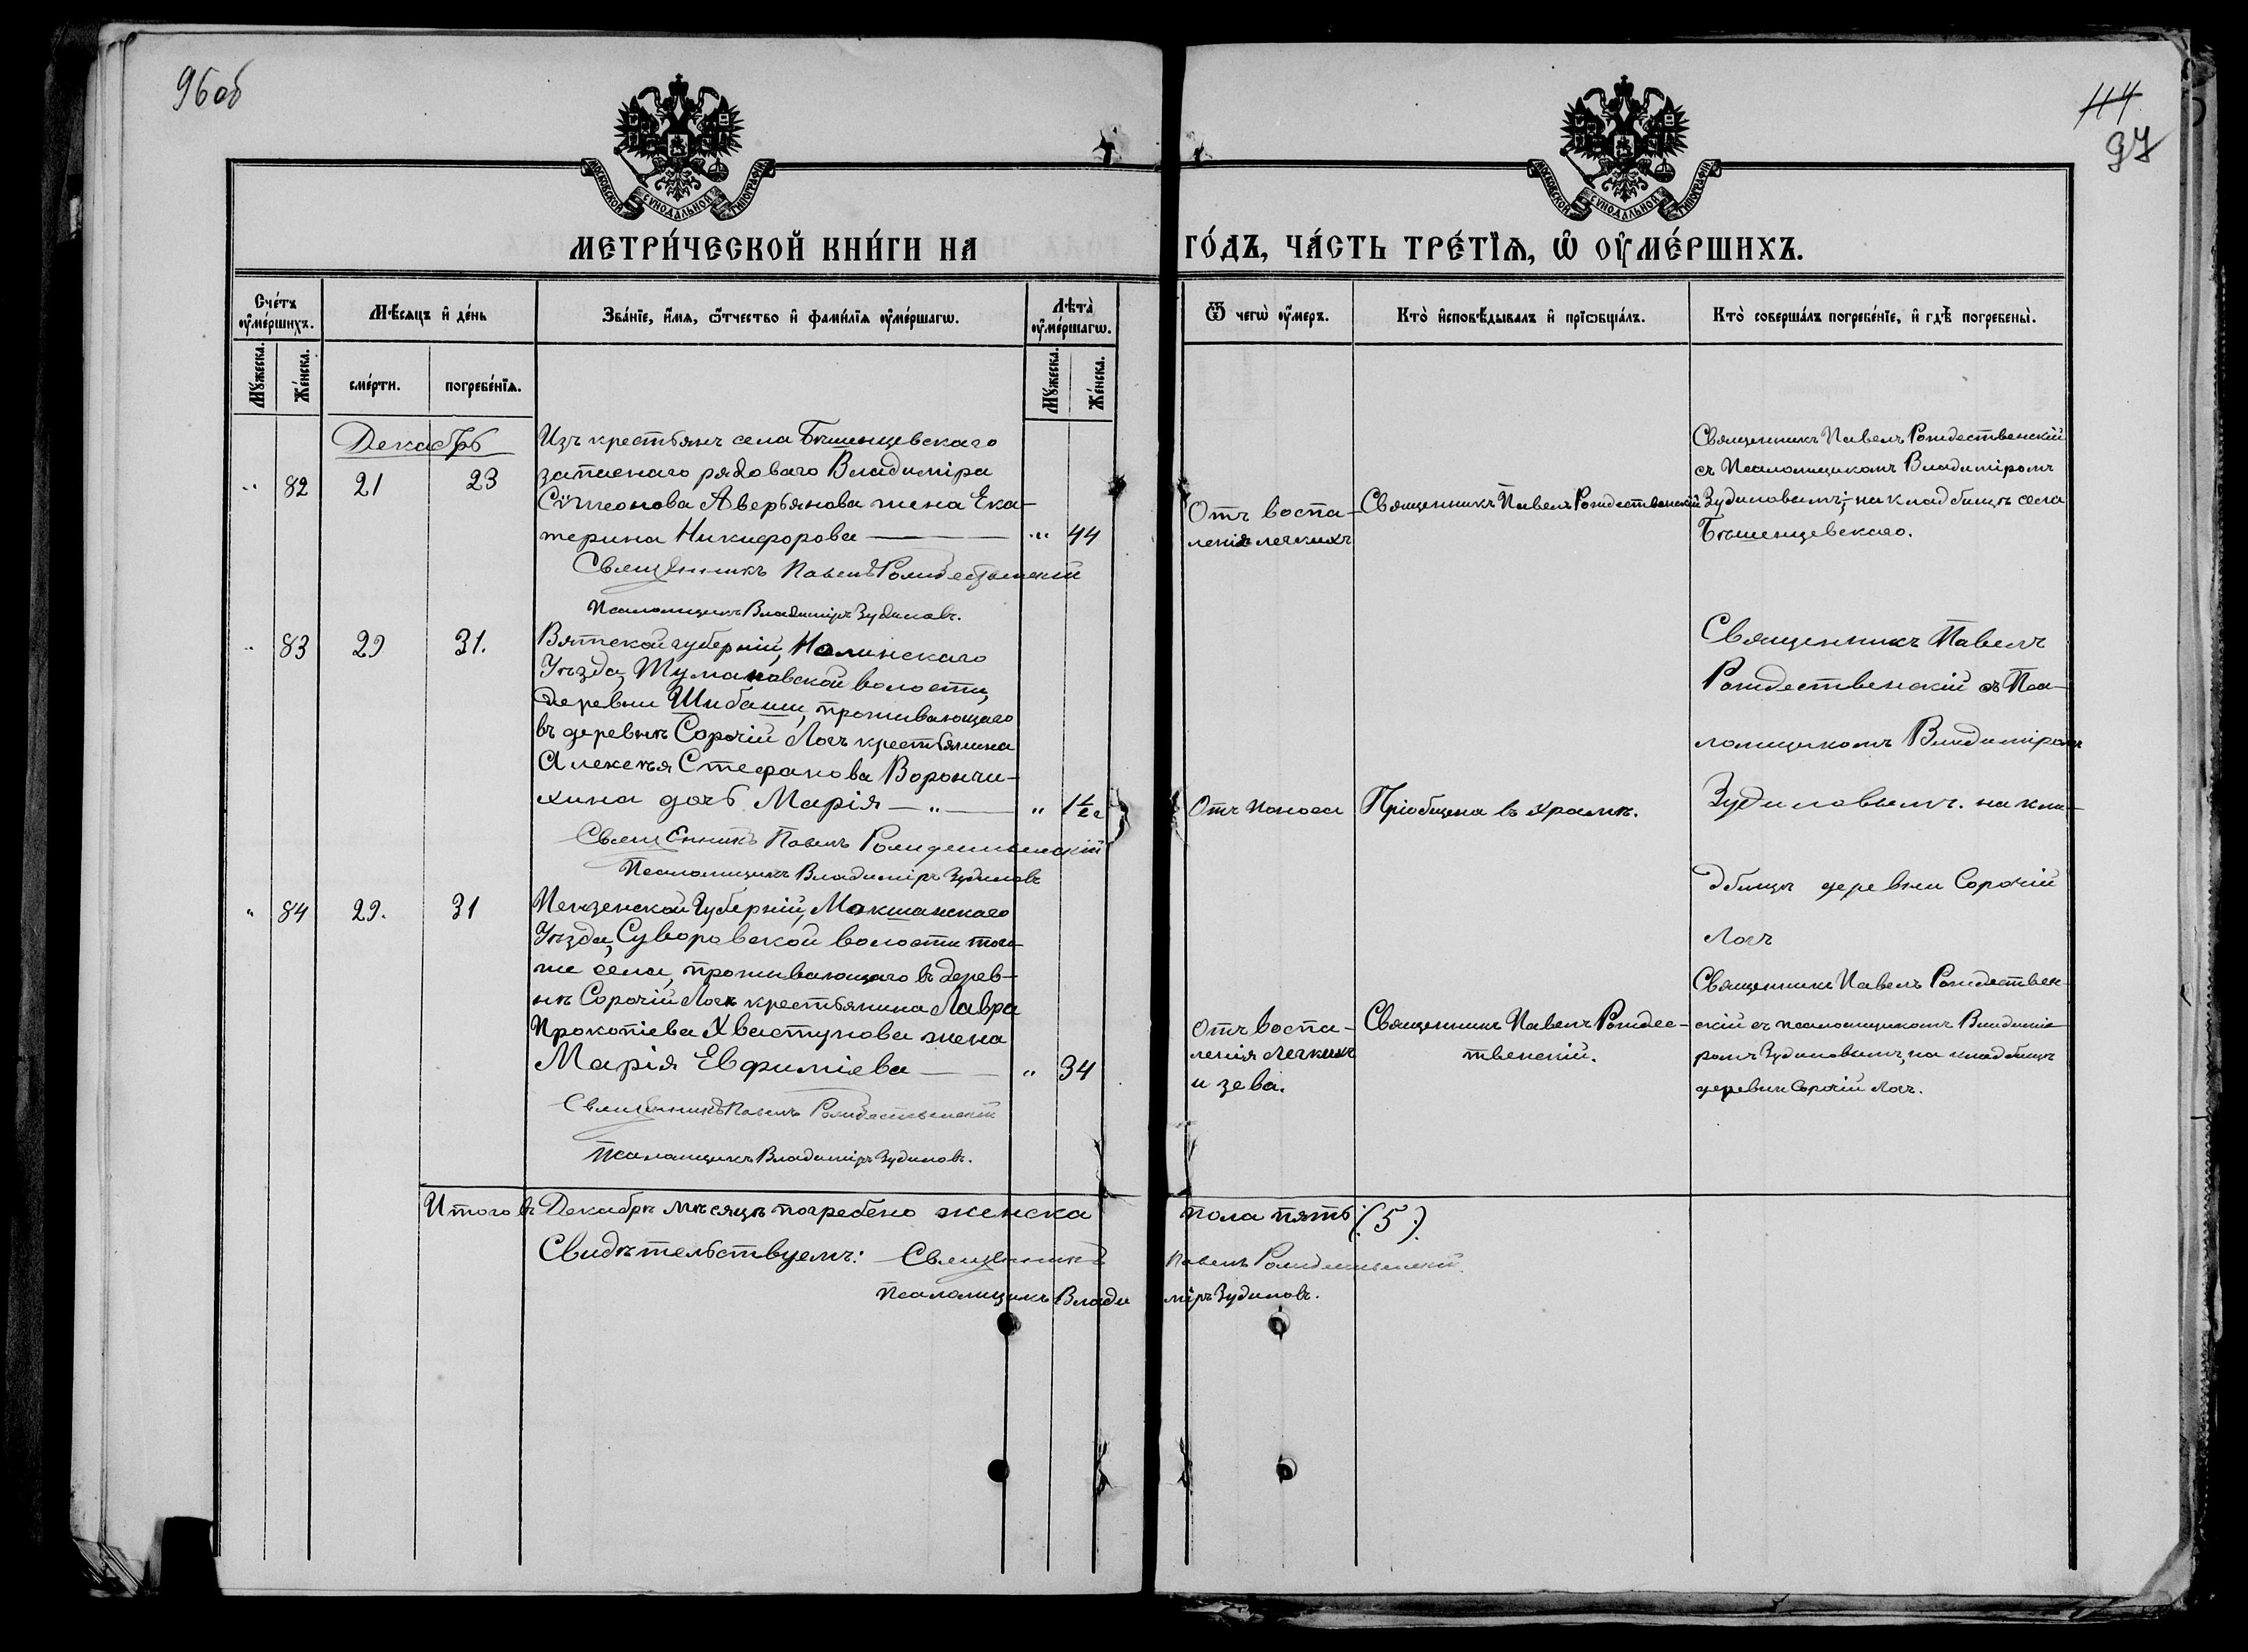 96 об
114
97
МОСКОВСКОЙ СѴНОДАЛЬНОЙ ТИПОГРАФІИ
МОСКОВСКОЙ СѴНОДАЛЬНОЙ ТИПОГРАФІИ
МЕТРИ́ЧЕСКОЙ КНИ́ГИ НА ГО́ДЪ, ЧА́СТЬ ТРЕ́ТІѦ, Ѡ ОУ҆МЕ́РШИХЪ.
Сче́тъ оу҆ме́ршихъ.
Мѣ́сяцъ и҆ де́нь
Зва́нїе, и҆́мѧ, ѻ҆́тчество и҆ фами́лїѧ оу҆ме́ршагѡ.
Лѣта̀ оу҆ме́ршагѡ.
Ѿ чегѡ̀ оу҆́меръ.
Кто̀ и҆сповѣ́дывалъ и҆ прїѡбща́лъ.
Кто̀ соверша́лъ погребе́нїе, и҆ гдѣ̀ погребены̀.
Мꙋ́жеска.
Же́нска.
сме́рти.
погребе́нїѧ.
Мꙋ́жеска.
Же́нска.
Декабрь
Изъ крестьянъ села Бѣшенцевскаго
„ 82 21 23 запаснаго рядоваго Владиміра
Сѵмеонова Аверьянова жена Ека-
терина Никифорова — „ 44
Отъ воспа-
ленія легкихъ
Священникъ Павелъ Рождественскій
Священникъ Павелъ Рождественскій
съ Псаломщикомъ Владиміромъ
Зудиловымъ; на кладбищѣ села
Бѣшенцевскаго.
Священникъ Павелъ Рождественскій
Псаломщикъ Владиміръ Зудиловъ.
„ 83 29 31. Вятской губерніи, Нолинскаго
Уѣзда, Тумановской волости,
деревни Шибаши, проживающаго
въ деревнѣ Сорочій Логъ крестьянина
Алексѣя Стефанова Ворончи-
хина дочь Марія — „ — „ 1½ г
Отъ поноса
Пріобщена въ храмѣ.
Священникъ Павелъ
Рождественскій съ Пса-
ломщикомъ Владиміромъ
Зудиловымъ. на кла-
дбищѣ деревни Сорочій
Логъ
Священникъ Павелъ Рождественскій
Псаломщикъ Владиміръ Зудиловъ
„ 84 29. 31 Пензенской Губерніи, Мокшанскаго
Уѣзда, Суворовской волости того
же села, проживающаго въ дерев-
нѣ Сорочій Логъ крестьянина Лавра
Прокопіева Хвастунова жена
Марія Евфиміева — „ 34
Отъ воспа-
ленія легкихъ
и зева.
Священникъ Павелъ Рождес-
твенскій.
Священникъ Павелъ Рождествен-
скій съ псаломщикомъ Владимі-
ромъ Зудиловымъ, на кладбищѣ
деревни Сорочій Логъ.
Священникъ Павелъ Рождественскій
Псаломщикъ Владиміръ Зудиловъ.
Итого въ Декабрѣ мѣсяцѣ погребено женска пола пять (5.)
Свидѣтельствуемъ: Священникъ Павелъ Рождественскій.
Псаломщикъ Владиміръ Зудиловъ.